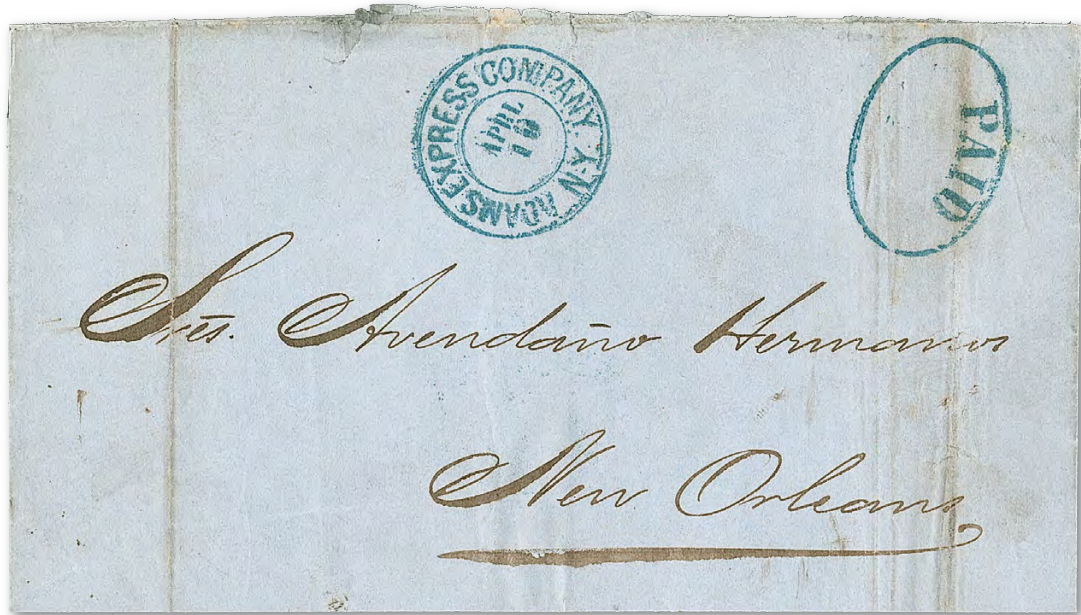 ADAMS EXPRESS COMPANY. N.Y.
APRL
16
PAID
Sres. Avendaño Hermanos
New. Orleans